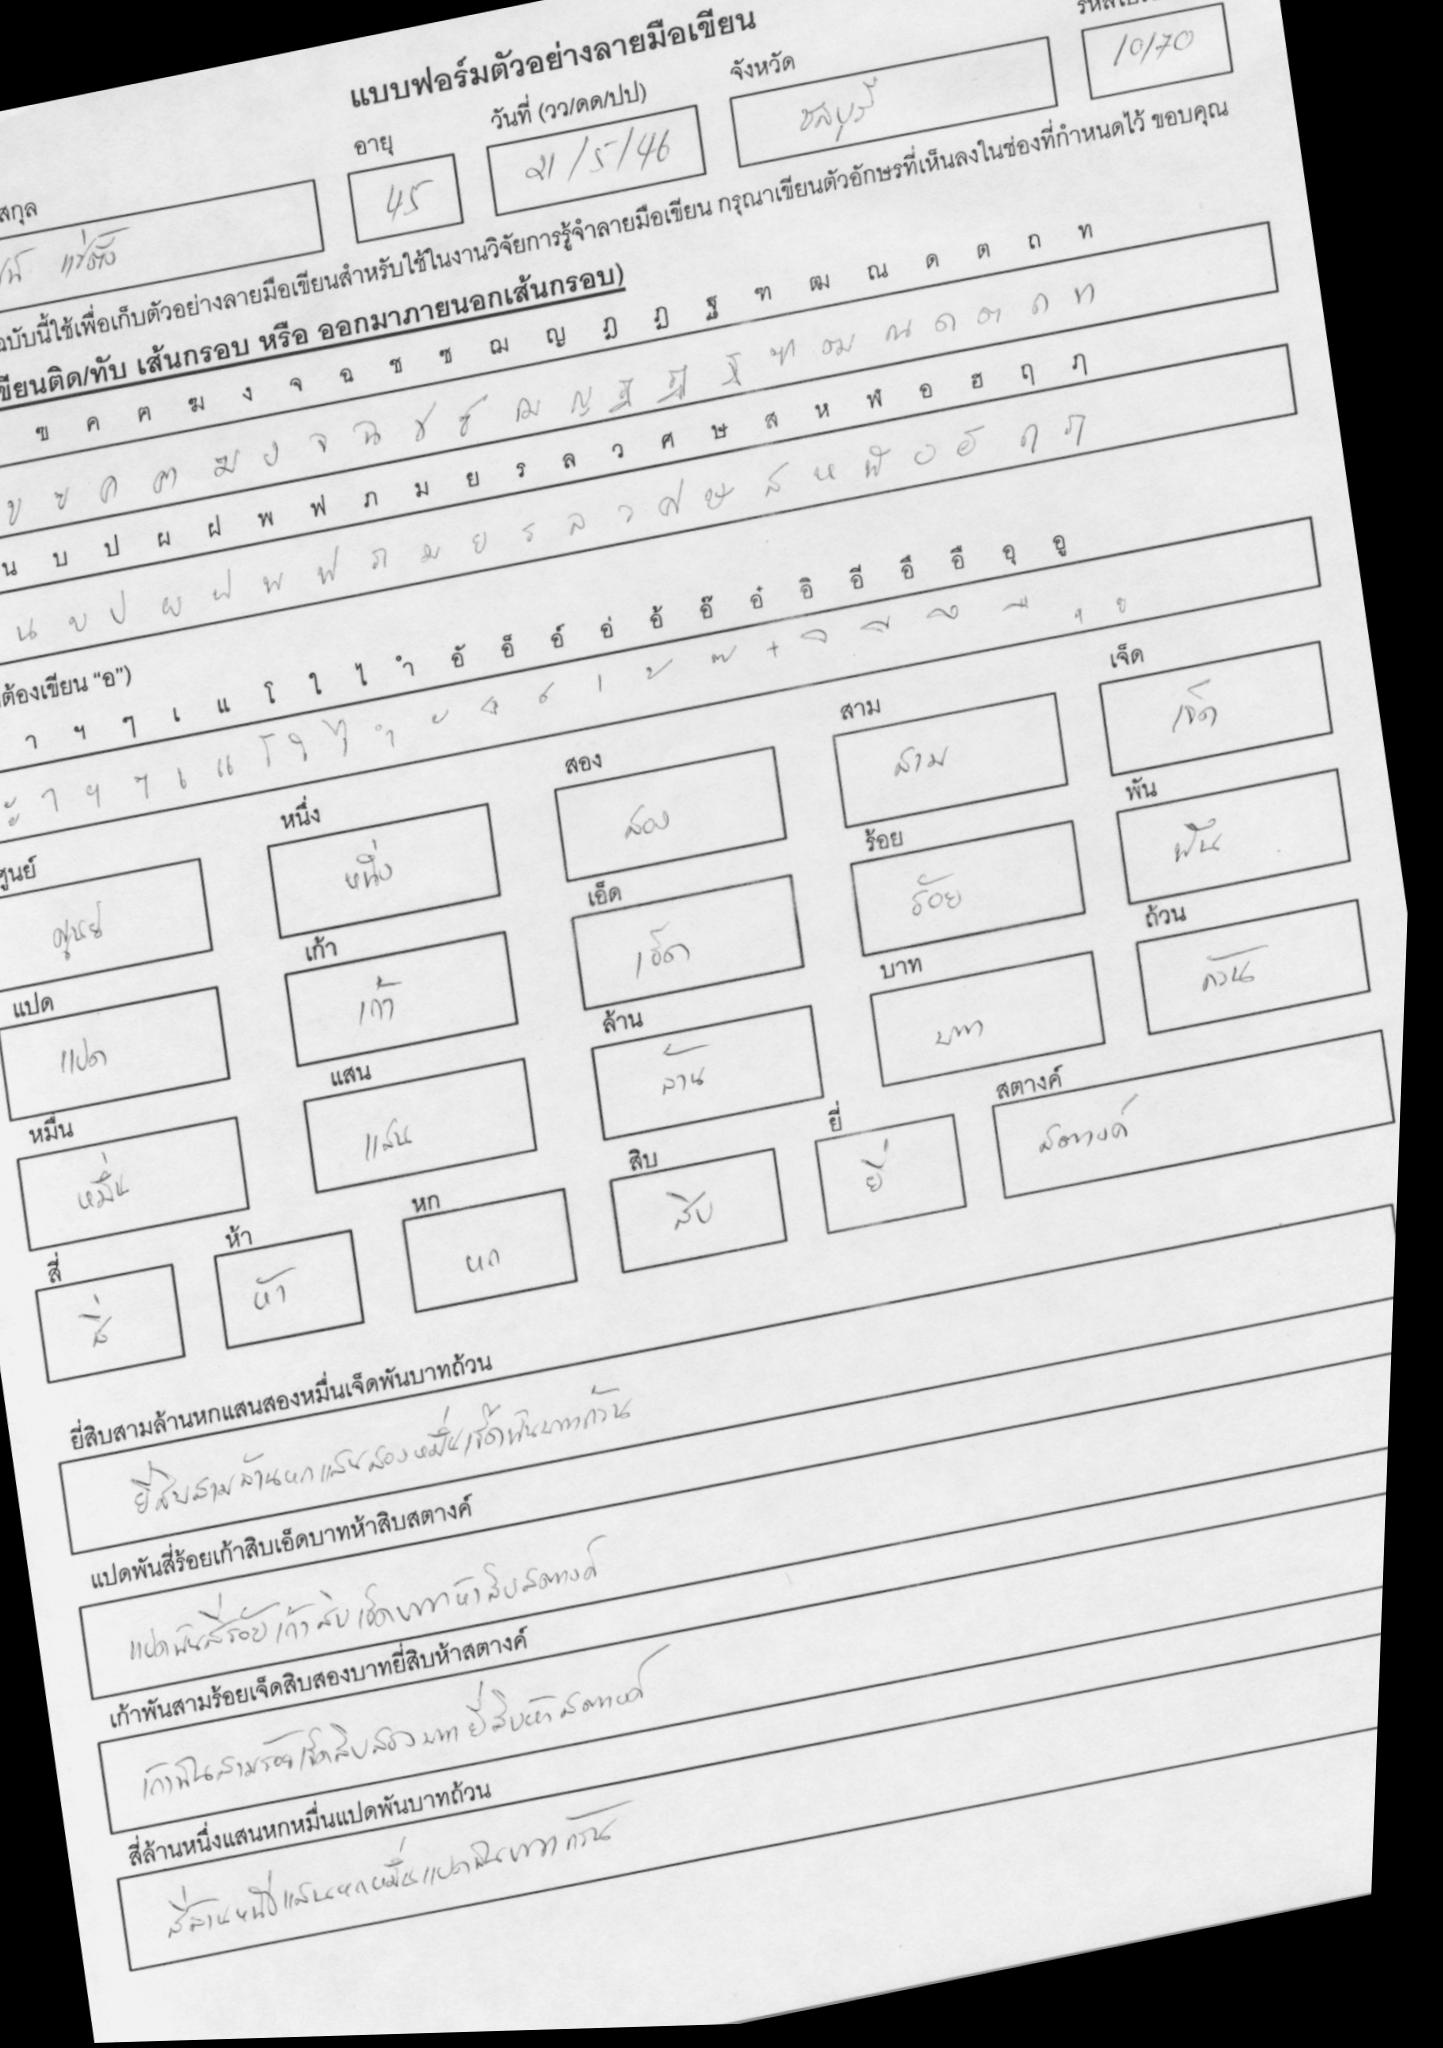 แบบฟอร์มตัวอย่างลายมือเขียน
สกุล อายุ วันที่ (วว/ดด/ปป) จังหวัด
แซ่ตั้ง 45 21/5/46 ชลบุรี 10170
ฉบับนี้ใช้เพื่อเก็บตัวอย่างลายมือเขียนสำหรับใช้ในงานวิจัยการรู้จำลายมือเขียน กรุณาเขียนตัวอักษรที่เห็นลงในช่องที่กำหนดไว้ ขอบคุณ
เขียนติด/ทับ เส้นกรอบ หรือ ออกมาภายนอกเส้นกรอบ)
ฃ ค ฅ ฆ ง จ ฉ ช ซ ฌ ญ ฎ ฏ ฐ ฑ ฒ ณ ด ต ถ ท
ข ฃ ค ฅ ฆ ง จ ฉ ช ซ ฌ ญ ฎ ฏ ฐ ฑ ฒ ณ ด ต ถ ท
น บ ป ผ ฝ พ ฟ ภ ม ย ร ล ว ศ ษ ส ห ฬ อ ฮ ฤ ฦ
น บ ป ผ ฝ พ ฟ ภ ม ย ร ล ว ศ ษ ส ห ฬ อ ฮ ฤ ฦ
ต้องเขียน "อ")
า ฯ ๆ เ แ โ ใ ไ ำ อั อ็ อ์ อ่ อ้ อ๊ อ๋ อิ อี อึ อื อุ อู
ะ า ฯ ๆ เ แ โ ใ ไ ำ ั ็ ์ ่ ้ ๊ ๋ ิ ี ึ ื ุ ู
ศูนย์ หนึ่ง สอง สาม เจ็ด
ศูนย์ หนึ่ง สอง สาม เจ็ด
แปด เก้า เอ็ด ร้อย พัน
แปด เก้า เอ็ด ร้อย พัน
หมื่น แสน ล้าน บาท ถ้วน
หมื่น แสน ล้าน บาท ถ้วน
สี่ ห้า หก สิบ ยี่ สตางค์
สี่ ห้า หก สิบ ยี่ สตางค์
ยี่สิบสามล้านหกแสนสองหมื่นเจ็ดพันบาทถ้วน
ยี่สิบสามล้านหกแสนสองหมื่นเจ็ดพันบาทถ้วน
แปดพันสี่ร้อยเก้าสิบเอ็ดบาทห้าสิบสตางค์
แปดพันสี่ร้อยเก้าสิบเอ็ดบาทห้าสิบสตางค์
เก้าพันสามร้อยเจ็ดสิบสองบาทยี่สิบห้าสตางค์
เก้าพันสามร้อยเจ็ดสิบสองบาทยี่สิบห้าสตางค์
สี่ล้านหนึ่งแสนหกหมื่นแปดพันบาทถ้วน
สี่ล้านหนึ่งแสนหกหมื่นแปดพันบาทถ้วน